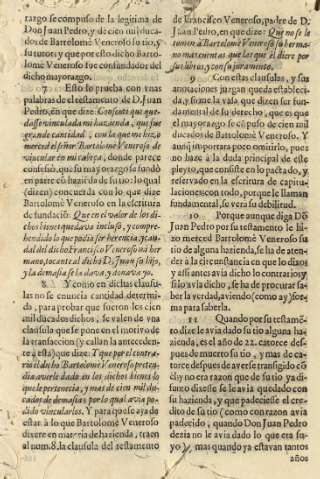 razgo se compuso de la legitima de
Don Juan Pedro, y de cien mil ducados
de Bartolomè Veneroso su tio, y
su tutor; y que por esto dicho Bartolomè
Veneroso fue confundador del
dicho mayorazgo.
7 Esto lo prueba con vnas
palabras de el testamento de D. Juan
Pedro, en que dize: Confiesò que quedasse
vinculada mi hazienda, que fue
grande cantidad, con la que me hizo
merced el señor Bartolomè Veneroso de
vincular en mi cabeça, donde parece
confesò, que su mayorazgo se fundò
en parte cõ hazienda de su tio: lo qual
(dizen) concuerda con lo que dize
Bartolomè Veneroso en la escritura
de fundaciõ: Que en el valor de los dichos
bienes quedava incluso, y comprehendido
lo que podia ser herencia, y caudal
del dicho Francisco Veneroso mi hermano,
tocante al dicho D. Juan su hijo,
y la demasia se la dava, y donava yo.
8 Y como en dichas clausulas
no se enuncia cantidad determinada,
para probar que fueron los cien
mil ducados dichos, se valen de vna
clausula que se pone en el motivo de
la transaccion (y callan la antecedente
à esta) que dize: Y que por el contrario
el dicho Bartolomè Veneroso pretendia
averle dado en los dichos bienes lo
que le pertenecia, y mas de cien mil ducados
de demasias por lo qual avia podido
vincularlos. Y para que se aya de
estar à lo que Bartolomè Veneroso
dixere en materia de hazienda, traen
al num. 8. la clausula del testamento
de Francisco Veneroso, padre de D.
Juan Pedro, en que dize: Que no se le
tomen à Bartolomè Veneroso su hermano
mas cuentas que las que èl diere por
sus libros, y con su juramento.
9 Con estas clausulas, y sus
annotaciones juzgan queda establecido,
y firme la vasa, que dizen ser fundamental
de su derecho, que es que
el mayorazgo se cõpuso de cien mil
ducados de Bartolomè Veneroso. Y
aunq̃ importara poco omitirlo, pues
no haze à la duda principal de este
pleyto, que consiste en lo pactado, y
relervado en la escritura de capitulaciones
con todo, porque le llaman
fundamental, se verà su debilidad.
10 Porque aunque diga Dõ
Juan Pedro por su testamento le hizo
merced Bartolomè Veneroso su
tio de alguna hazienda, se ha de atender
à la circunstancia en que lo dixo:
y assi antes avia dicho lo contrario; y
sólo avia dicho, se ha de procurar saber
la verdad, aviendo (como ay) forma
para saberla.
11 Quando por su testamento
dize le avia dado su tio alguna hazienda,
es el año de 22. catorce despues
de muerto su tio, y mas de catorce
despues de averse transigido cõ
èl: y no era razon que de su tio ya difunto
diesse se le avia quedado con
su hazienda, y que padeciesse el credito
de su tio (como con razon avia
padecido, quando Don Juan Pedro
dezia no le avia dado lo que era suyo)
y mas quando ya estavan tantos
años